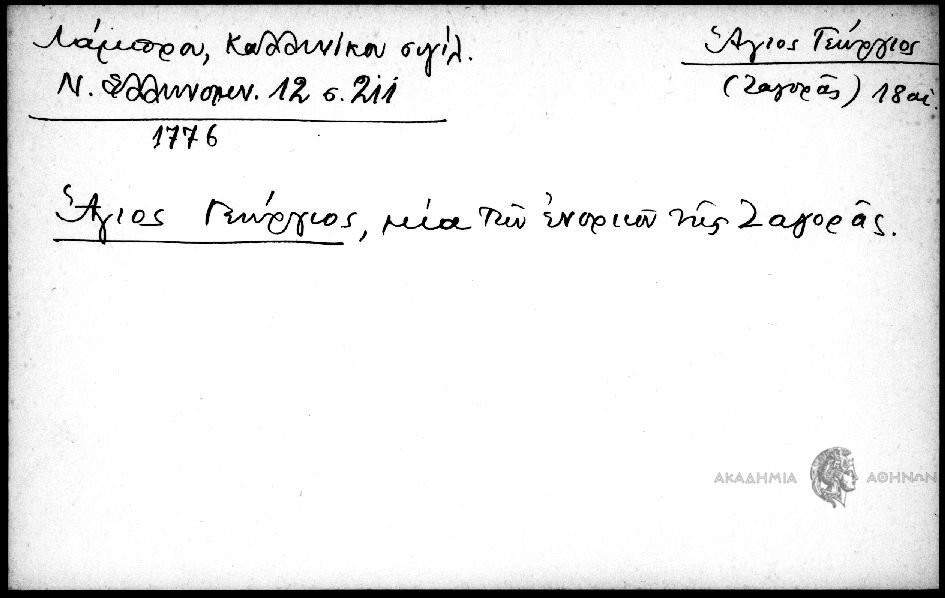 Λάμπρου, Καλλινίκου σιγίλ.
Ν. Ἑλληνομν. 12 σ. 211
1776
Ἅγιος Γεώργιος
(Ζαγορᾶς) 18 αἰ.
Ἅγιος Γεώργιος, μία τῶν ἐνοριῶν τῆς Ζαγορᾶς.
ΑΚΑΔΗΜΙΑ ΑΘΗΝΩΝ